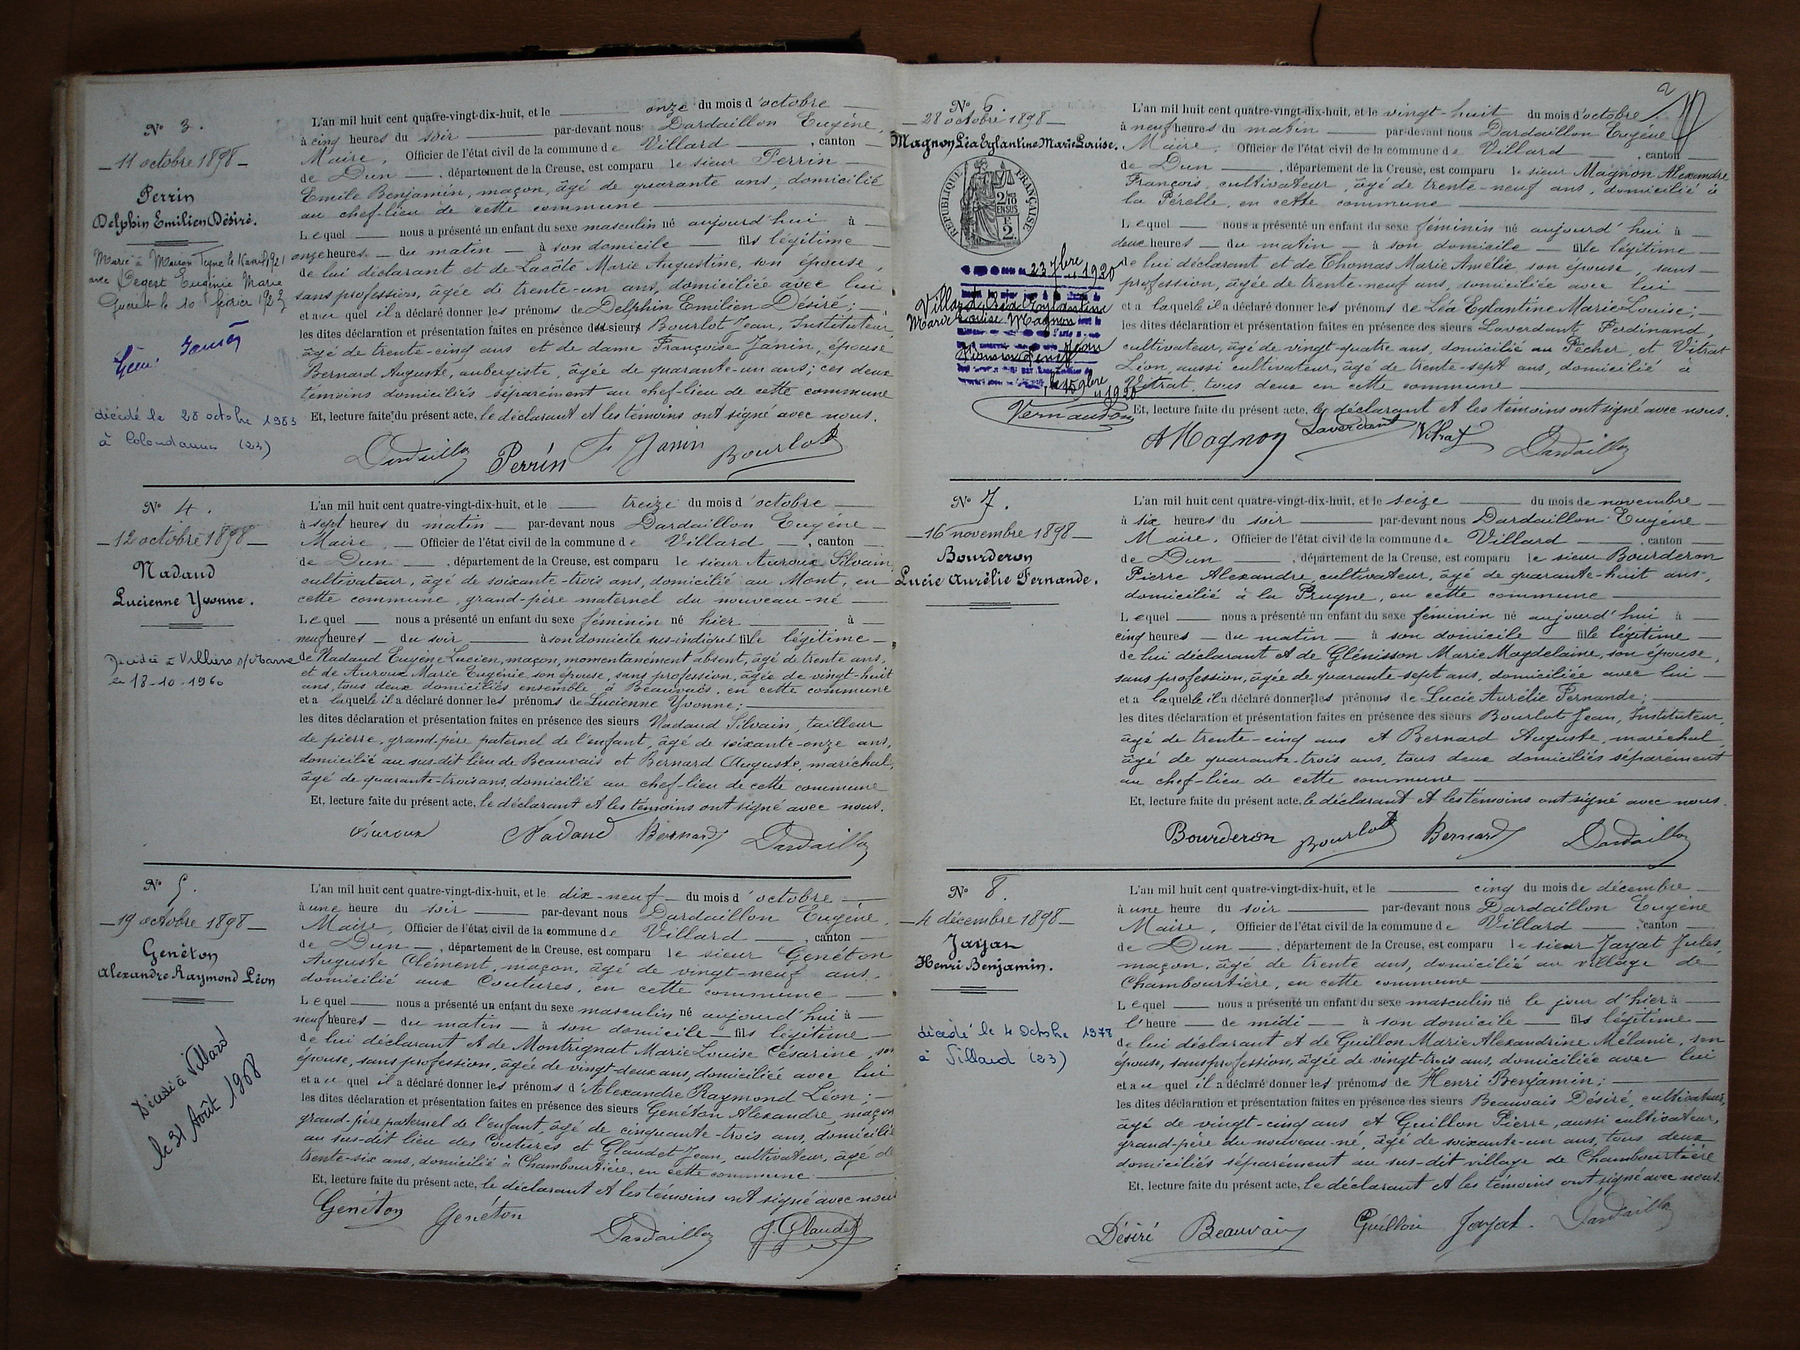 N° 3.
11 octobre 1898
Perrin
Delphin Emilien Désiré.
Marié à le 16 avril 1921
avec Eugénie Marie
le 10 février 1923
décédé le 28 octobre 1983
à (23)
L'an mil huit cent quatre-vingt-dix-huit, et le onze du mois d'octobre
à cinq heures du soir par-devant nous Dardaillon Eugène,
Maire, Officier de l'état civil de la commune de Villard, canton
de Dun, département de la Creuse, est comparu le sieur Perrin
Emile Benjamin, maçon, âgé de quarante ans, domicilié
au chef-lieu de cette commune
Lequel nous a présenté un enfant du sexe masculin né aujourd'hui à
onze heures du matin à son domicile fils légitime
de lui déclarant et de Lacôte Marie Augustine, son épouse,
sans profession, âgée de trente-un ans, domiciliée avec lui
et auquel il a déclaré donner les prénoms de Delphin Emilien Désiré;
les dites déclaration et présentation faites en présence du sieur Bourlot Jean, Instituteur
âgé de trente-cinq ans et de dame Françoise Janin, épouse
Bernard Auguste, aubergiste, âgée de quarante-un ans; ces deux
témoins domiciliés séparément au chef-lieu de cette commune
Et, lecture faite du présent acte, le déclarant et les témoins ont signé avec nous.
Dardaillon Perrin F Janin Bourlot
N° 4.
12 octobre 1898
Nadaud
Lucienne Yvonne.
Décédée à Villiers s/Marne
le 18-10-1960
L'an mil huit cent quatre-vingt-dix-huit, et le treize du mois d'octobre
à sept heures du matin par-devant nous Dardaillon Eugène
Maire, Officier de l'état civil de la commune de Villard, canton
de Dun, département de la Creuse, est comparu le sieur Auroux Silvain,
cultivateur, âgé de soixante-trois ans, domicilié au Mont, en
cette commune, grand-père maternel du nouveau-né
Lequel nous a présenté un enfant du sexe féminin né hier à
neuf heures du soir à son domicile sus-indiqué fille légitime
de Nadaud Eugène Lucien, maçon, momentanément absent, âgé de trente ans,
et de Auroux Marie Eugénie son épouse, sans profession, âgée de vingt-huit
ans, tous deux domiciliés ensemble à Beauvais, en cette commune
et a laquelle il a déclaré donner les prénoms de Lucienne Yvonne;
les dites déclaration et présentation faites en présence des sieurs Nadaud Silvain, tailleur
de pierre, grand-père paternel de l'enfant, âgé de soixante-onze ans,
domicilié au sus-dit lieu de Beauvais et Bernard Auguste, maréchal,
âgé de quarante-trois ans, domicilié au chef-lieu de cette commune
Et, lecture faite du présent acte, le déclarant et les témoins ont signé avec nous.
Auroux Nadaud Bernard Dardaillon
N° 5.
19 octobre 1898
Genéton
Alexandre Raymond Léon
Décédé à Villard
le 31 Août 1968
L'an mil huit cent quatre-vingt-dix-huit, et le dix-neuf du mois d'octobre
à une heure du soir par-devant nous Dardaillon Eugène,
Maire, Officier de l'état civil de la commune de Villard, canton
de Dun, département de la Creuse, est comparu le sieur Genéton
Auguste Clément, maçon, âgé de vingt-neuf ans,
domicilié aux Coutures, en cette commune
Lequel nous a présenté un enfant du sexe masculin né aujourd'hui à
neuf heures du matin à son domicile fils légitime
de lui déclarant et de Montrignat Marie Louise Césarine, son
épouse, sans profession, âgée de vingt-deux ans, domiciliée avec lui
et auquel il a déclaré donner les prénoms d'Alexandre Raymond Léon;
les dites déclaration et présentation faites en présence des sieurs Genéton Alexandre, maçon
grand-père paternel de l'enfant, âgé de cinquante-trois ans, domicilié
au sus-dit lieu des Coutures et Glaudet Jean, cultivateur, âgé de
trente-six ans, domicilié à Chambourtière, en cette commune
Et, lecture faite du présent acte, le déclarant et les témoins ont signé avec nous
Genéton Genéton Dardaillon J. Glaudet
2
N° 6.
28 octobre 1898
Magnon Léa Eglantine Marie Louise.
RÉPUBLIQUE FRANÇAISE
23 7bre 1920
Villard Léa Eglantine
Marie Louise Magnon
Jean
le 15 9bre
1920
Vernaudon
L'an mil huit cent quatre-vingt-dix-huit, et le vingt huit du mois d'octobre
à neuf heures du matin par-devant nous Dardaillon Eugène
Maire, Officier de l'état civil de la commune de Villard, canton
de Dun, département de la Creuse, est comparu le sieur Magnon Alexandre
François, cultivateur, âgé de trente-neuf ans, domicilié à
la Pérelle, en cette commune
Lequel nous a présenté un enfant du sexe féminin né aujourd'hui à
deux heures du matin à son domicile fille légitime
de lui déclarant et de Thomas Marie Amélie, son épouse, sans
profession, âgée de trente-neuf ans, domiciliée avec lui
et a laquelle il a déclaré donner les prénoms de Léa Eglantine Marie Louise;
les dites déclaration et présentation faites en présence des sieurs Laverdant, Ferdinand
cultivateur, âgé de vingt-quatre ans, domicilié au Pêcher, et Vitrat
Léon, aussi cultivateur, âgé de trente-sept ans, domicilié à
Vitrat, tous deux en cette commune
Et, lecture faite du présent acte, le déclarant et les témoins ont signé avec nous.
A Magnon Laverdant Vitrat Dardaillon
N° 7.
16 novembre 1898
Bourderon
Lucie Aurélie Fernande.
L'an mil huit cent quatre-vingt-dix-huit, et le seize du mois de novembre
à six heures du soir par-devant nous Dardaillon Eugène
Maire, Officier de l'état civil de la commune de Villard, canton
de Dun, département de la Creuse, est comparu le sieur Bourderon
Pierre Alexandre, cultivateur, âgé de quarante-huit ans,
domicilié à la Prugne, en cette commune
Lequel nous a présenté un enfant du sexe féminin né aujourd'hui à
cinq heures du matin à son domicile fille légitime
de lui déclarant et de Glénisson Marie Magdelaine, son épouse,
sans profession, âgée de quarante-sept ans, domiciliée avec lui
et a laquelle il a déclaré donner les prénoms de Lucie Aurélie Fernande;
les dites déclaration et présentation faites en présence des sieurs Bourlot Jean, Instituteur,
âgé de trente-cinq ans et Bernard Auguste, maréchal
âgé de quarante-trois ans, tous deux domiciliés séparément
au chef-lieu de cette commune
Et, lecture faite du présent acte, le déclarant et les témoins ont signé avec nous.
Bourderon Bourlot Bernard Dardaillon
N° 8.
4 décembre 1898
Jayat
Henri Benjamin.
décédé le 4 Octobre 1978
à Villard (23)
L'an mil huit cent quatre-vingt-dix-huit, et le cinq du mois de décembre
à une heure du soir par-devant nous Dardaillon Eugène
Maire, Officier de l'état civil de la commune de Villard, canton
de Dun, département de la Creuse, est comparu le sieur Jayat Jules,
maçon, âgé de trente ans, domicilié au village de
Chambourtière, en cette commune
Lequel nous a présenté un enfant du sexe masculin né le jour d'hier à
l'heure de midi à son domicile fils légitime
de lui déclarant et de Guillon Marie Alexandrine Mélanie, son
épouse, sans profession, âgée de vingt-trois ans, domiciliée avec lui
et auquel il a déclaré donner les prénoms de Henri Benjamin;
les dites déclaration et présentation faites en présence des sieurs Beauvais Désiré, cultivateur,
âgé de vingt-cinq ans et Guillon Pierre, aussi cultivateur,
grand-père du nouveau-né, âgé de soixante-un ans, tous deux
domiciliés séparément au sus-dit village de Chambourtière
Et, lecture faite du présent acte, le déclarant et les témoins ont signé avec nous.
Désiré Beauvais Guillon Jayat. Dardaillon